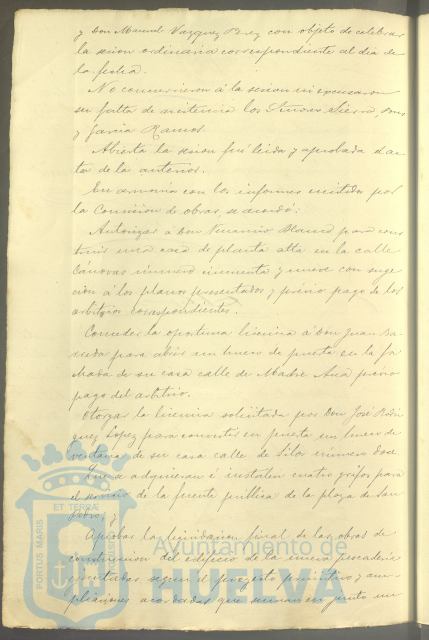 y Don Manuel Vazquez Perez con objeto de celebrar
la sesion ordinaria correspondiente al dia de
la fecha.
No concurrieron á la sesion ni excusaron
su falta de asistencia los Señores Sierra,
y Garcia Ramos.
Abierta la sesion fué leida y aprobada el ac-
ta de la anterior.
En armonia con los informes emitidos por
la Comision de obras, se acordó:
Autorizar á Don Venancio para cons-
truir una casa de planta alta en la calle
Cánovas número cincuenta y nueve con suge-
cion á los planos presentados y previo pago de los
arbitrios correspondientes.
Conceder la oportuna licencia á Don Juan Ba-
para abrir un hueco de puerta en la fa-
chada de su casa calle de Madre Ana previo
pago del arbitrio.
Otorgar la licencia solicitada por Don José Rodri-
guez Lopez para convertir en puerta un hueco de
ventana de su casa calle de Silos número doce
Que se adquieran é instalen cuatro grifos para
el servicio de la fuente publica de la plaza de San
Pedro; y
Aprobar la liquidacion final de las obras de
construccion del edificio de la nueva pescaderia
ejecutadas segun el proyecto primitivo y am-
pliaciones acordadas que suman en junto un
FORTUS MARIS ET TERRÆ
Ayuntamiento de
HUELVA